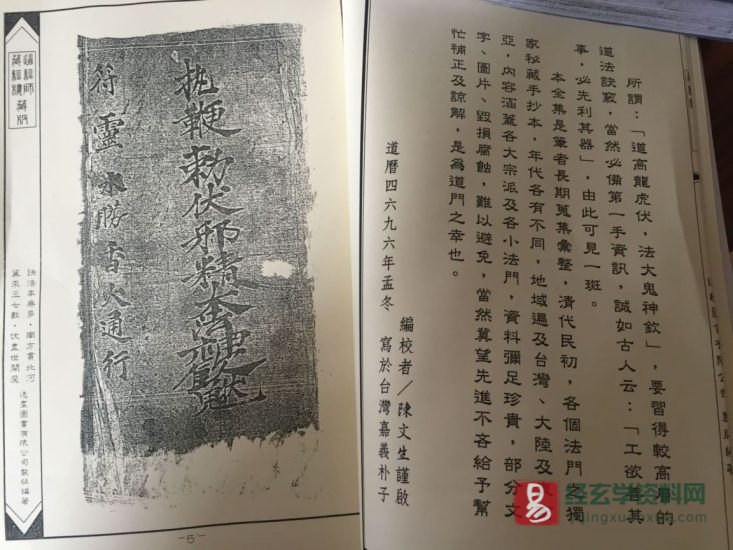 所謂：「道高龍虎伏，法大鬼神欽」，要習得較高層的
道法訣竅，當然必備第一手資訊，誠如古人云：「工欲善其
事，必先利其器」，由此可見一斑。
本全集是筆者長期蒐集彙整，清代民初，各個法門之獨
家秘藏手抄本，年代各有不同，地域遍及台灣、大陸及
亞，內容涵蓋各大宗派及各小法門，資料彌足珍貴，部分文
字、圖片、毀損腐蝕，難以避免，當然冀望先進不吝給予幫
忙補正及諒解，是為道門之幸也。
編校者／陳文生謹啟
道曆四六九六年孟冬　寫於台灣嘉義朴子
執鞭勅伏邪精
符靈水勝香火通行
訣法本無多，南方書北河
算來三七數，伏盡世間魔
逸羣圖書有限公司製版編著
藏經樓藏版
—5—
易
经玄学资料网